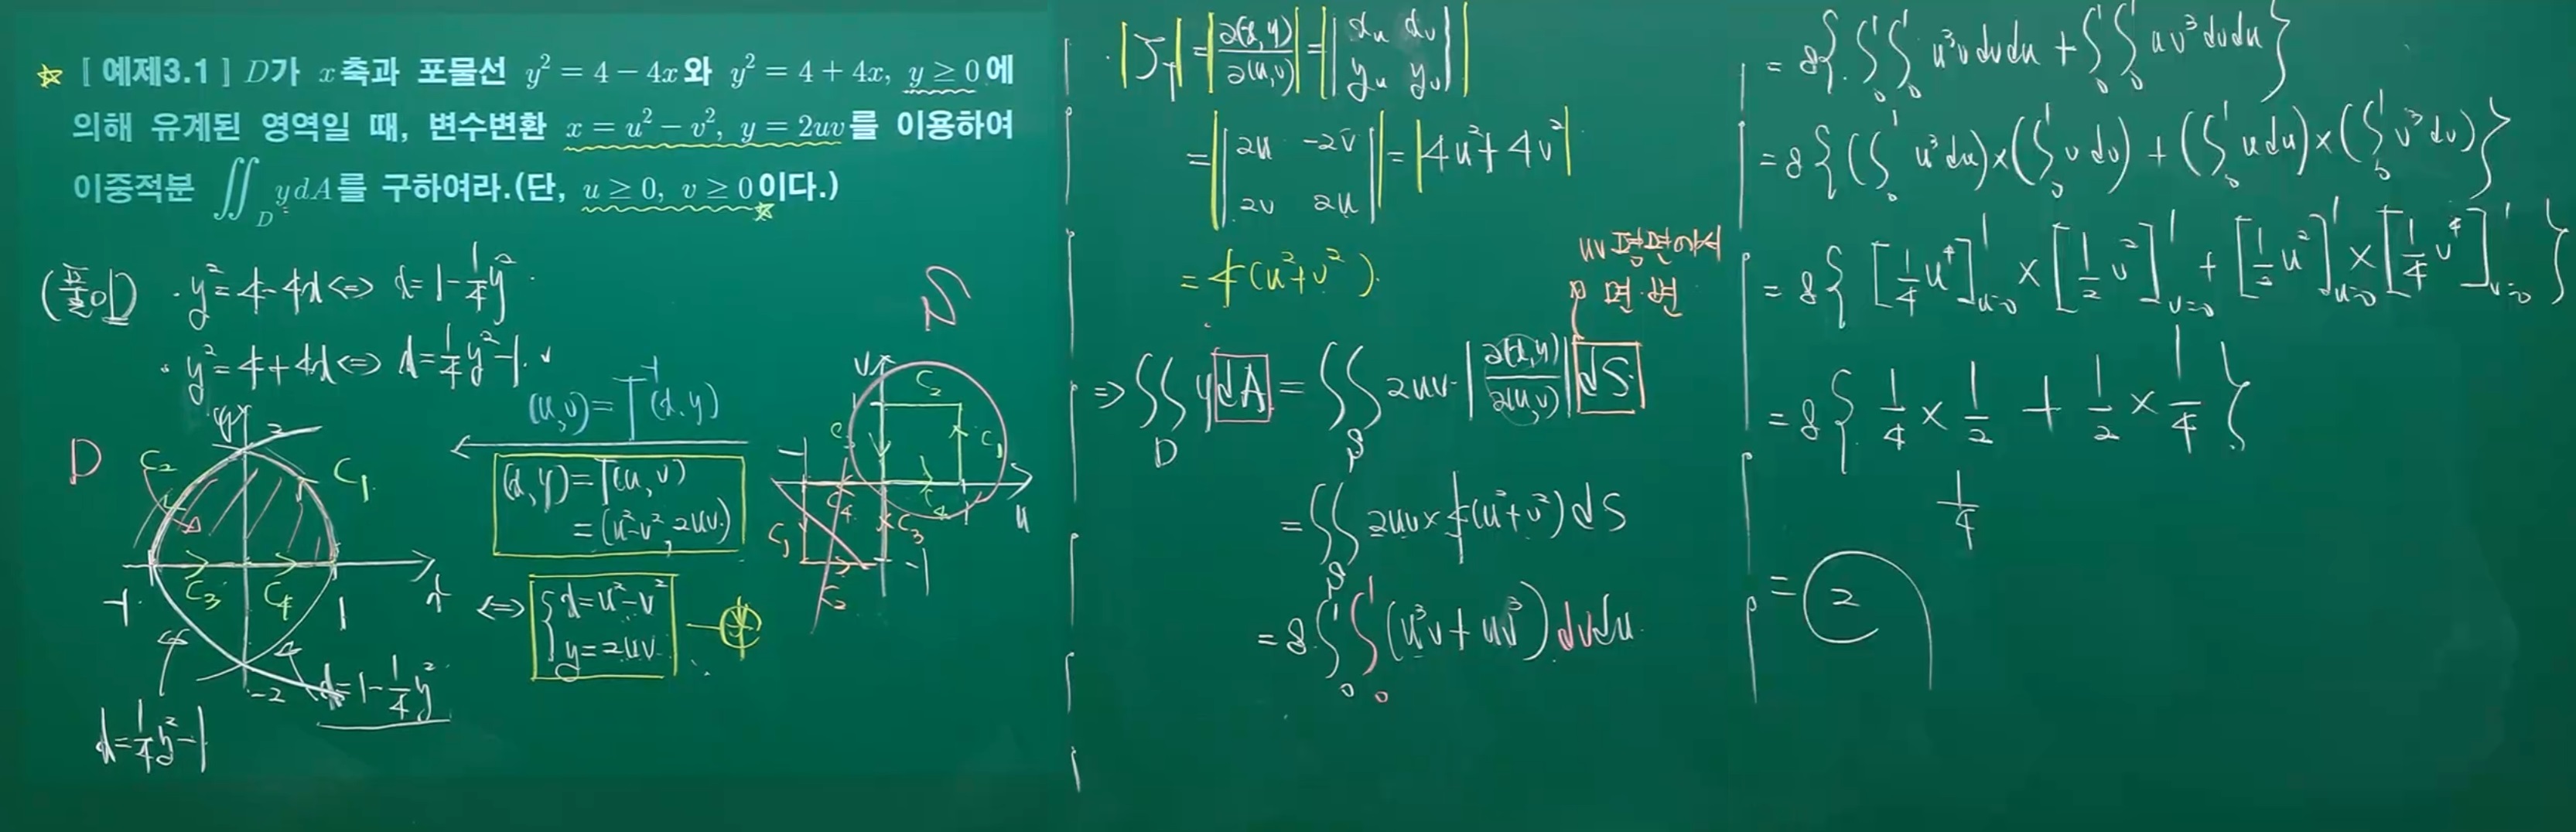 ☆ [ 예제3.1 ] D가 x축과 포물선 y² = 4 − 4x와 y² = 4 + 4x, y ≥ 0에
의해 유계된 영역일 때, 변수변환 x = u² − v², y = 2uv를 이용하여
이중적분 ∬_D ydA를 구하여라.(단, u ≥ 0, v ≥ 0이다.)
☆
(풀이) · y² = 4 - 4x ⇔ x = 1 - 1/4 y² ·
· y² = 4 + 4x ⇔ x = 1/4 y² - 1 ·
D
y
2
C₂
C₁
C₃
C₄
-1
1
x
-2
x = 1/4 y² - 1
x = 1 - 1/4 y²
(u,v) = T⁻¹(x,y)
(x,y) = T(u,v)
= (u²-v², 2uv)
⇔ { x = u² - v²
y = 2uv
S
v
1
C₂
C₁
C₃
C₄
1
u
-1
C₄
C₁
C₃
C₂
-1
· |J_T| = |∂(x,y)/∂(u,v)| = || x_u x_v
y_u y_v ||
= || 2u -2v
2v 2u || = |4u² + 4v²|
= 4(u² + v²).
uv 평면에서
면·변
⇒ ∬_D y dA = ∬_S 2uv · |∂(x,y)/∂(u,v)| dS
= ∬_S 2uv × 4(u² + v²) dS
= 8 ∫₀¹ ∫₀¹ (u³v + uv³) dv du
= 8{ ∫₀¹ ∫₀¹ u³v dv du + ∫₀¹ ∫₀¹ uv³ dv du }
= 8{ (∫₀¹ u³ du) × (∫₀¹ v dv) + (∫₀¹ u du) × (∫₀¹ v³ dv) }
= 8{ [1/4 u⁴]¹_{u=0} × [1/2 v²]¹_{v=0} + [1/2 u²]¹_{u=0} × [1/4 v⁴]¹_{v=0} }
= 8{ 1/4 × 1/2 + 1/2 × 1/4 }
1/4
= 2